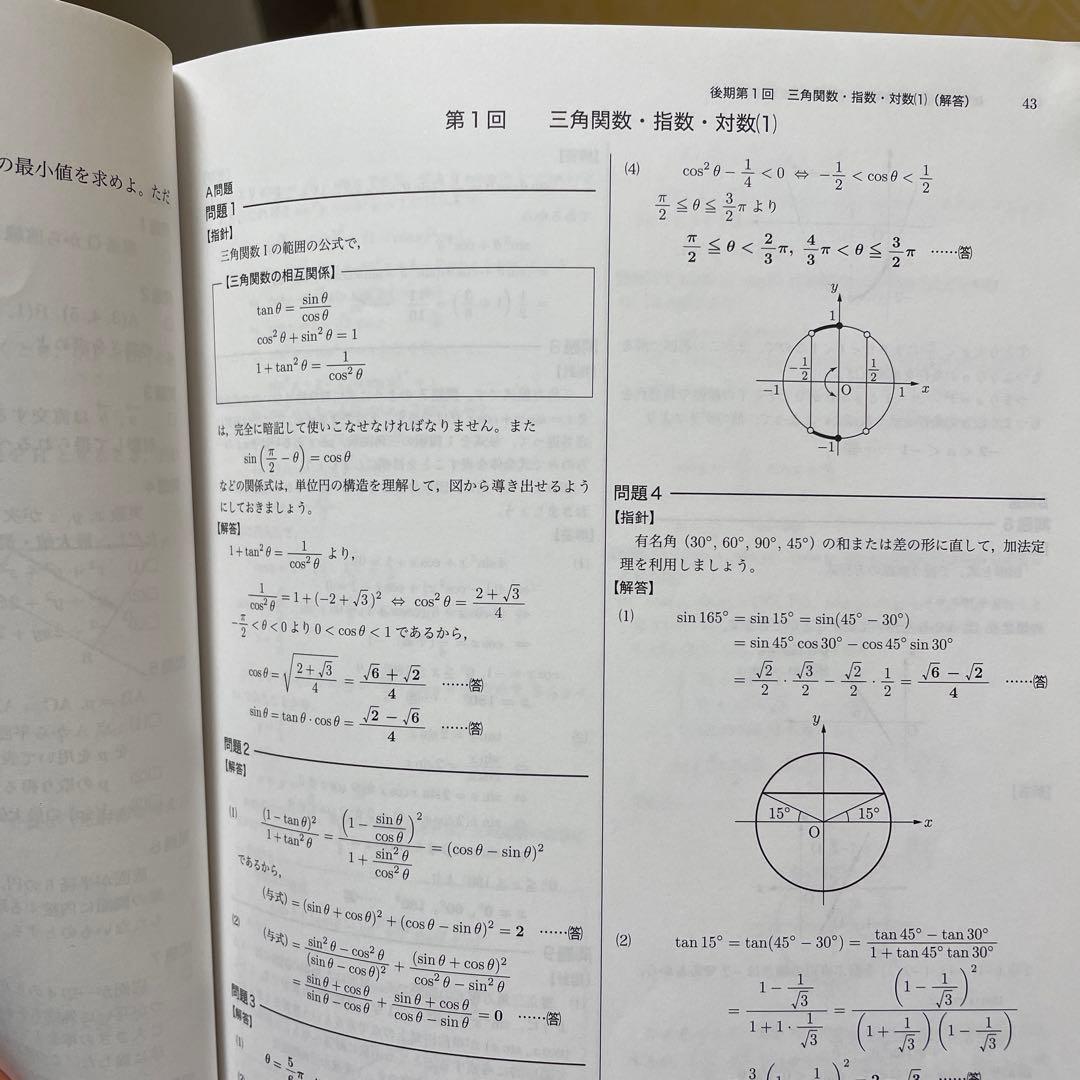 の最小値を求めよ。ただ
後期第1回 三角関数・指数・対数(1)(解答) 43
第1回 三角関数・指数・対数(1)
A問題
問題1
【指針】
三角関数Iの範囲の公式で,
【三角関数の相互関係】
tanθ = sinθ/cosθ
cos²θ + sin²θ = 1
1 + tan²θ = 1/cos²θ
は, 完全に暗記して使いこなせなければなりません。また
sin(π/2 − θ) = cosθ
などの関係式は, 単位円の構造を理解して, 図から導き出せるよう
にしておきましょう。
【解答】
1 + tan²θ = 1/cos²θ より,
1/cos²θ = 1 + (−2 + √3)² ⇔ cos²θ = (2 + √3)/4
−π/2 < θ < 0 より 0 < cosθ < 1 であるから,
cosθ = √((2 + √3)/4) = (√6 + √2)/4 ……(答)
sinθ = tanθ · cosθ = (√2 − √6)/4 ……(答)
問題2
【解答】
(1) (1 − tanθ)²/(1 + tan²θ) = (1 − sinθ/cosθ)²/(1 + sin²θ/cos²θ) = (cosθ − sinθ)²
であるから,
(与式) = (sinθ + cosθ)² + (cosθ − sinθ)² = 2 ……(答)
(2) (与式) = (sin²θ − cos²θ)/(sinθ − cosθ)² + (sinθ + cosθ)²/(cos²θ − sin²θ)
= (sinθ + cosθ)/(sinθ − cosθ) + (sinθ + cosθ)/(cosθ − sinθ) = 0 ……(答)
問題3
【解答】
(1)
(4) cos²θ − 1/4 < 0 ⇔ −1/2 < cosθ < 1/2
π/2 ≦ θ ≦ 3/2 π より
π/2 ≦ θ < 2/3 π, 4/3 π < θ ≦ 3/2 π ……(答)
y
1
−1/2 1/2
−1 O 1 x
−1
問題4
【指針】
有名角 (30°, 60°, 90°, 45°) の和または差の形に直して, 加法定
理を利用しましょう。
【解答】
(1) sin 165° = sin 15° = sin(45° − 30°)
= sin 45° cos 30° − cos 45° sin 30°
= √2/2 · √3/2 − √2/2 · 1/2 = (√6 − √2)/4 ……(答)
y
15° 15°
O x
(2) tan 15° = tan(45° − 30°) = (tan 45° − tan 30°)/(1 + tan 45° tan 30°)
= (1 − 1/√3)/(1 + 1 · 1/√3) = (1 − 1/√3)²/((1 + 1/√3)(1 − 1/√3))